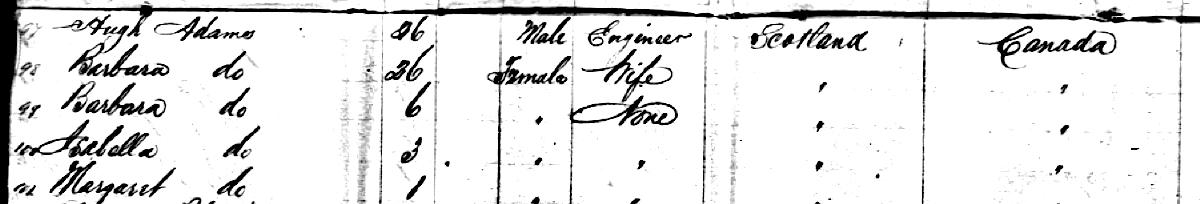 97 Hugh Adams 26 Male Engineer Scotland Canada
98 Barbara do 26 Female Wife " "
99 Barbara do 6 " None " "
100 Isabella do 3 " " " "
Margaret do 1 " " " "